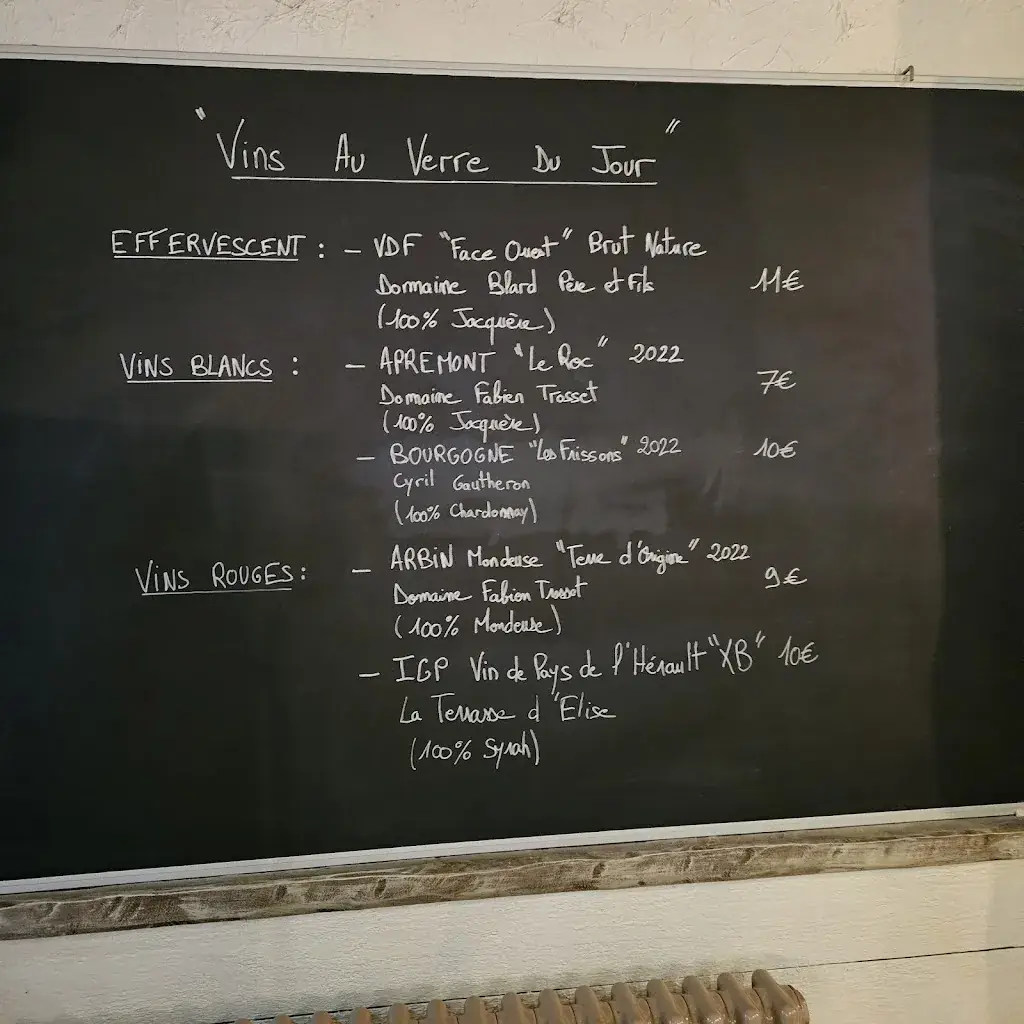 "Vins Au Verre Du Jour"
EFFERVESCENT : - VDF "Face Ouest" Brut Nature
Domaine Blard Père et Fils 11€
(100% Jacquère)
VINS BLANCS : - APREMONT "Le Roc" 2022
Domaine Fabien Trosset 7€
(100% Jacquère)
- BOURGOGNE "Les Frissons" 2022 10€
Cyril Gautheron
(100% Chardonnay)
VINS ROUGES : - ARBIN Mondeuse "Terre d'Origine" 2022
Domaine Fabien Trosset 9€
(100% Mondeuse)
- IGP Vin de Pays de l'Hérault "XB" 10€
La Terrasse d'Elise
(100% Syrah)